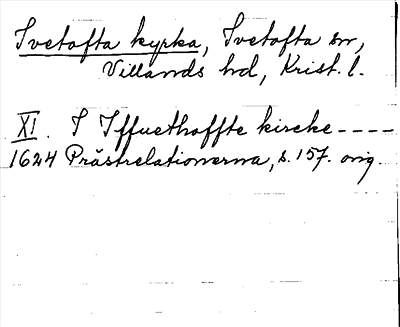 Ivetofta kyrka, Ivetofta sn,
Villands hd, Krist. l.
XI. I Iffuethoffte kircke ----
1624 Prästrelationerna, s. 157. orig.